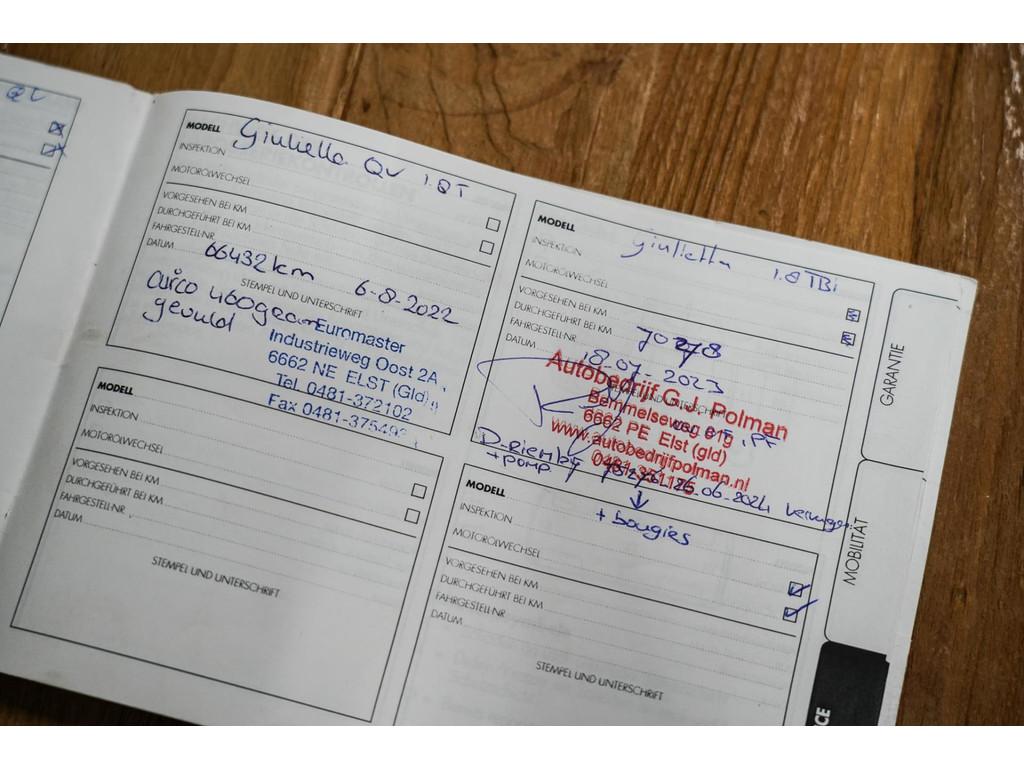 QV
MODELL
Giulietta QV 1.8T
INSPEKTION
MOTORÖLWECHSEL
VORGESEHEN BEI KM
DURCHGEFÜHRT BEI KM
FAHRGESTELL-NR.
DATUM
66432 km 6-8-2022
STEMPEL UND UNTERSCHRIFT
airco 460 gram
gevuld
Euromaster
Industrieweg Oost 2A,
6662 NE ELST (Gld)
Tel. 0481-372102
Fax 0481-375498
MODELL
INSPEKTION
MOTORÖLWECHSEL
VORGESEHEN BEI KM
DURCHGEFÜHRT BEI KM
FAHRGESTELL-NR.
DATUM
STEMPEL UND UNTERSCHRIFT
MODELL
Giulietta 1.8 TBi
INSPEKTION
MOTORÖLWECHSEL
VORGESEHEN BEI KM
DURCHGEFÜHRT BEI KM
70278
FAHRGESTELL-NR.
DATUM
18-07-2023
Autobedrijf G.J. Polman
Bemmelseweg 81g
6662 PE Elst (gld)
www.autobedrijfpolman.nl
D-riem bij 26-06-2024
+ pomp
+ bougies
MODELL
INSPEKTION
MOTORÖLWECHSEL
VORGESEHEN BEI KM
DURCHGEFÜHRT BEI KM
FAHRGESTELL-NR
DATUM
STEMPEL UND UNTERSCHRIFT
GARANTIE
MOBILITÄT
CE